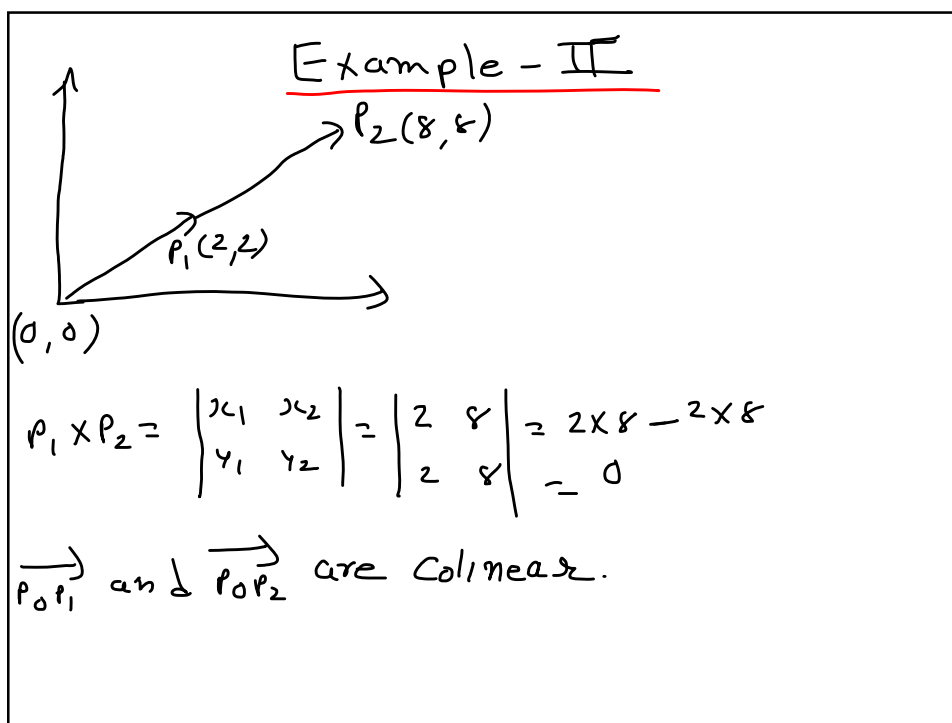 Example - II
P2(8,8)
P1(2,2)
(0,0)
P1 × P2 = | x1 x2 | = | 2 8 | = 2×8 - 2×8
| y1 y2 | | 2 8 | = 0
P0P1 and P0P2 are Colinear.